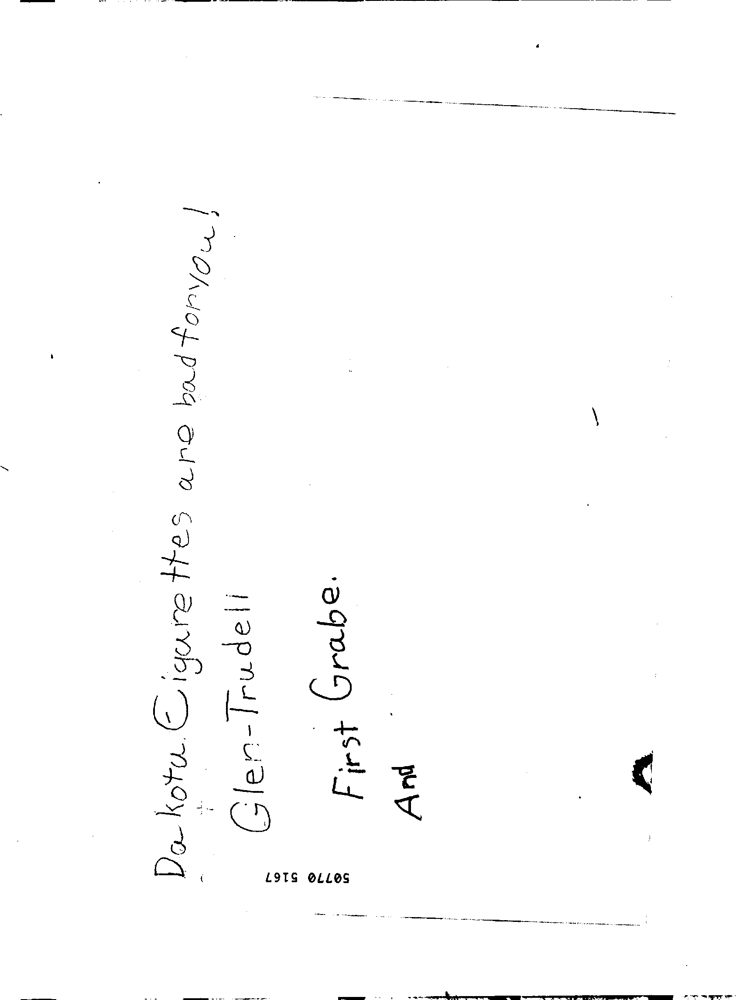 Dakota Cigarettes are bad for you!
Glen-Trudell
First Grabe.
And
50770 5167